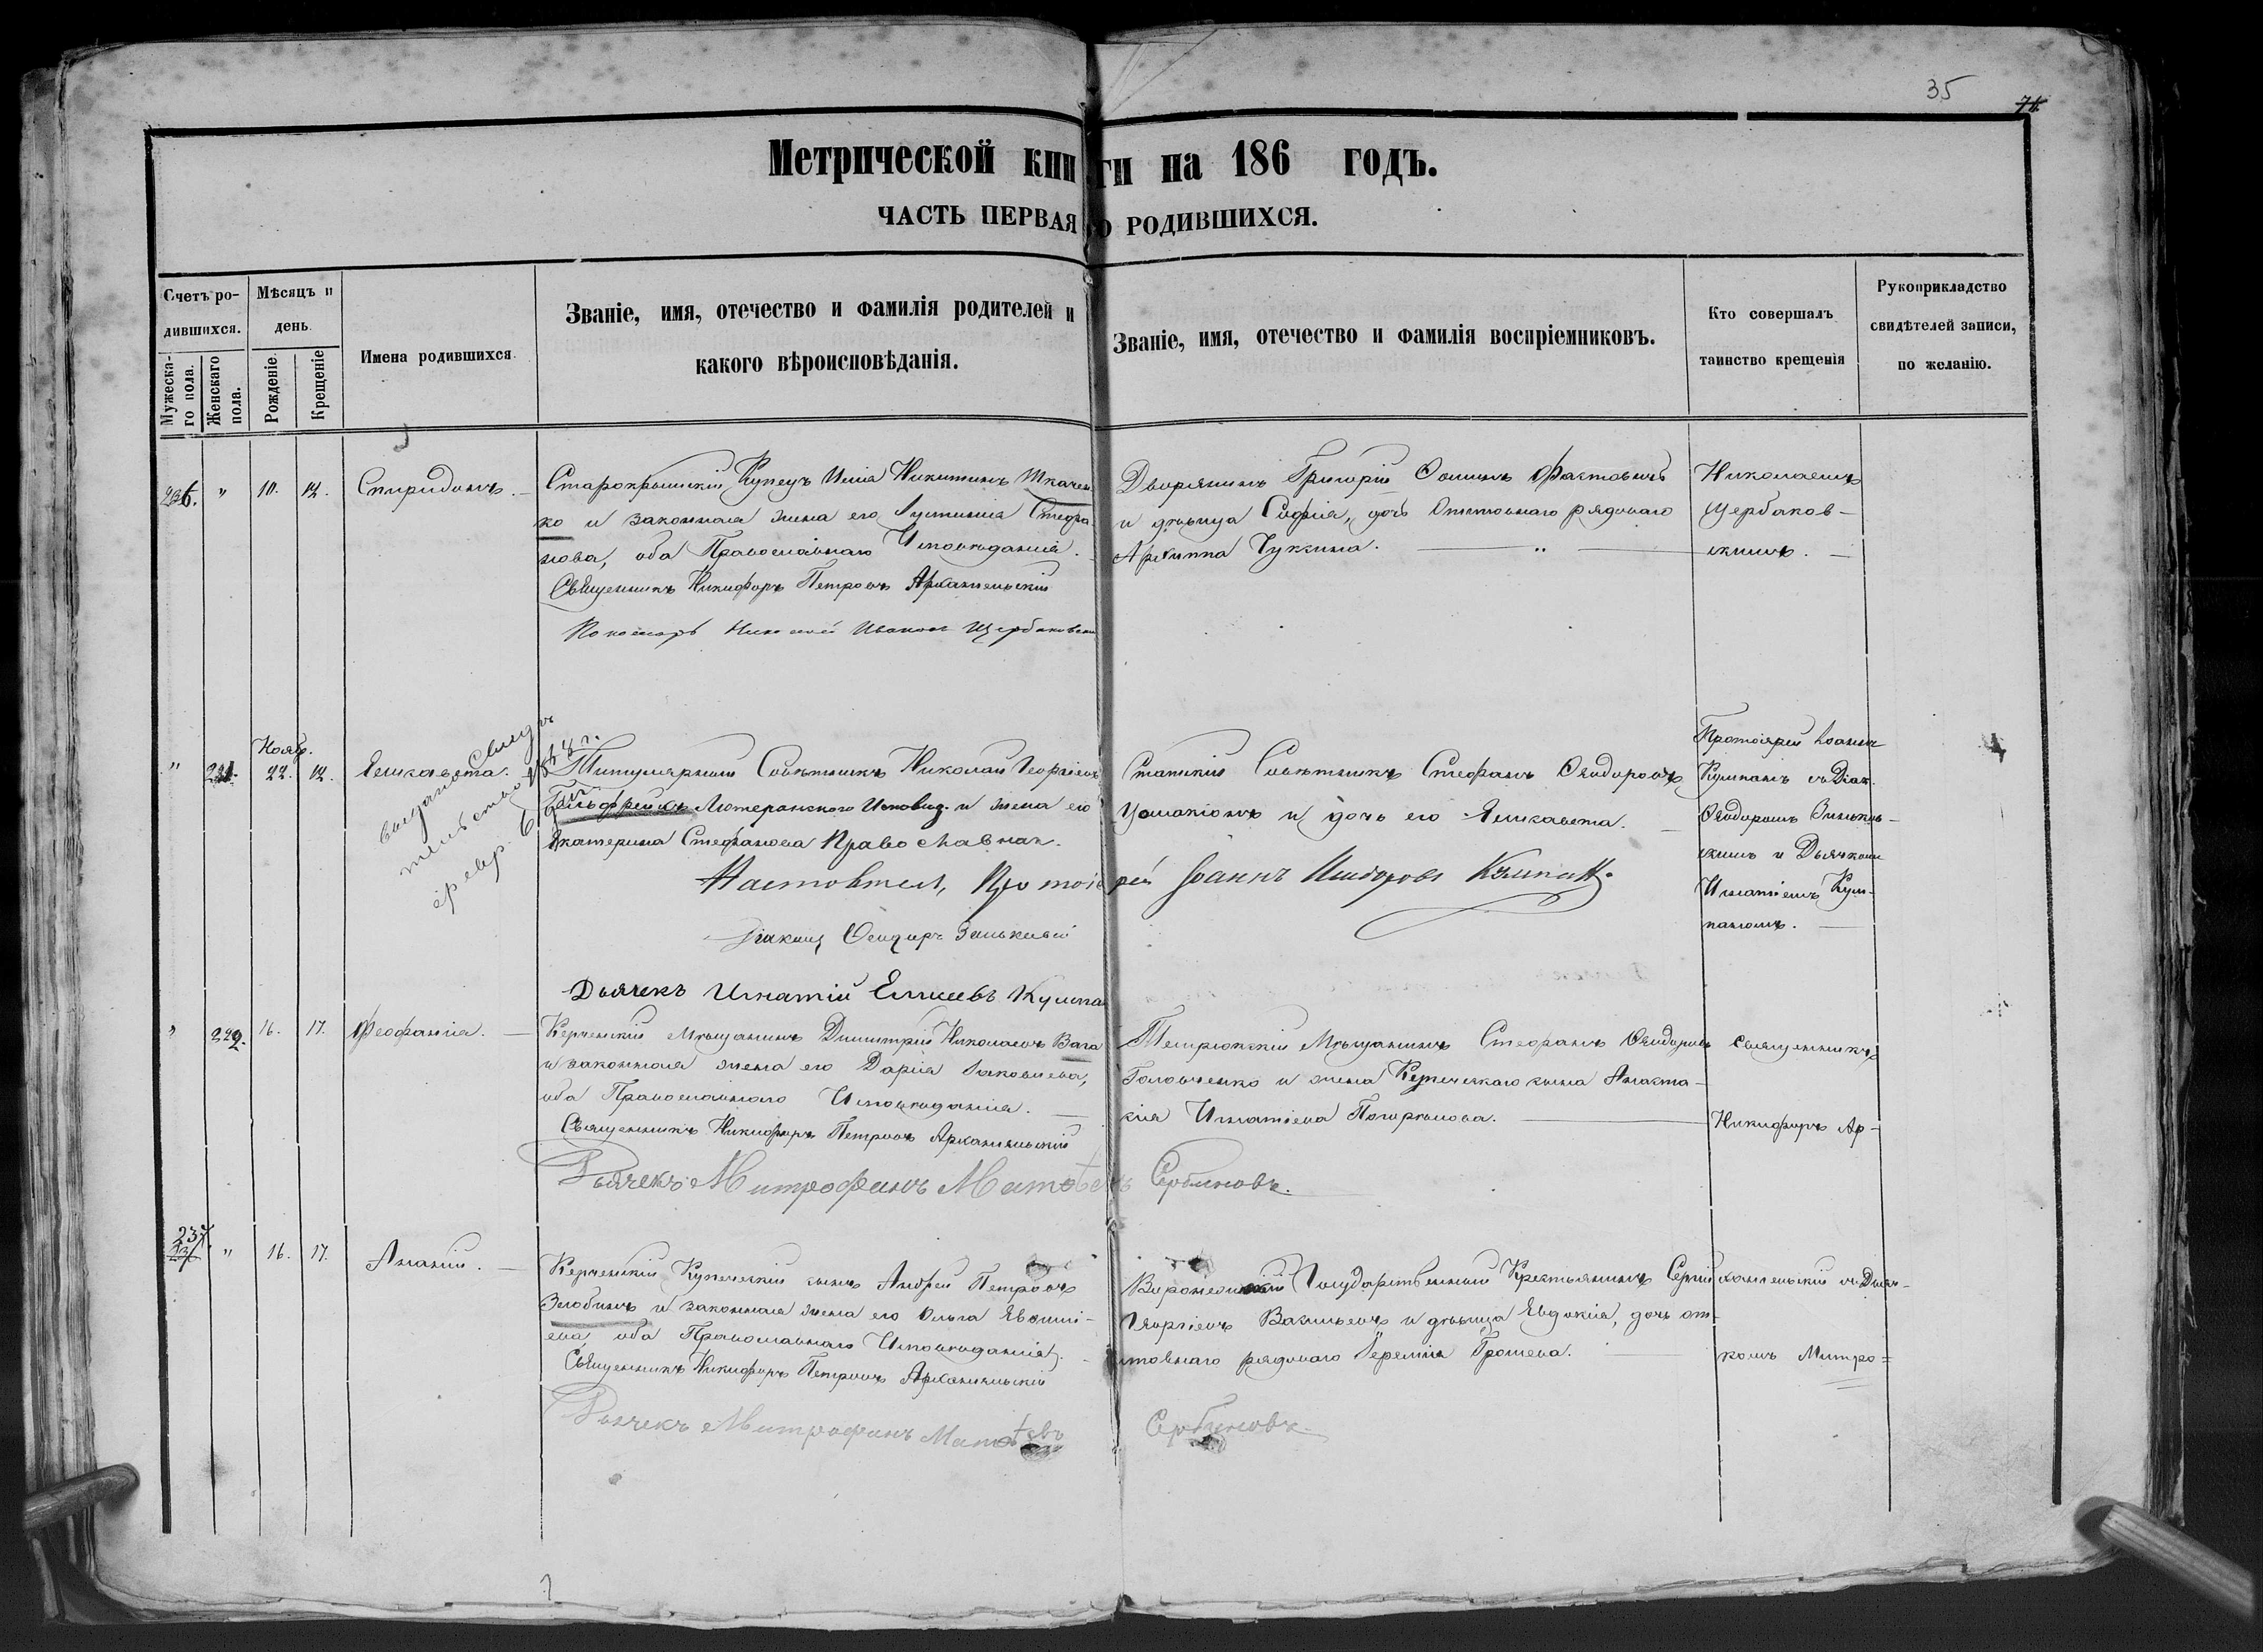 35
Метрической книги на 186 годъ.
ЧАСТЬ ПЕРВАЯ О РОДИВШИХСЯ.
Счетъ ро-
дившихся.
Мужеска-
го пола.
Женскаго
пола.
Мѣсяцъ и
день
Рожденіе.
Крещеніе
Имена родившихся.
Званіе, имя, отечество и фамилія родителей и
какого вѣроисповѣданія.
Званіе, имя, отечество и фамилія воспріемниковъ.
Кто совершалъ
таинство крещенія
Рукоприкладство
свидѣтелей записи,
по желанію.
236. " 10. 12. Спиридонъ.
Старокрымскій Купецъ Илія Никитинъ Ткачен
ко и законная жена его Іустинія Стефа
нова, оба Православнаго Исповѣданія.
Священникъ Никифоръ Петровъ Архангельскій
Пономарь Николай Ивановъ Щербаковскій
Дворянинъ Григорій Фоминъ
и дѣвица Софія, дочь Отставнаго рядоваго
Архиппа Чукина.
Николаемъ
Щербаков-
скимъ.
" Нояб. 22. 12. Елисавета.
выдано свидѣ
тельство 1874 г.
февр. 6 дня
Титулярный Совѣтникъ Николай Георгіевъ
Лютеранскаго Исповѣд. и жена его
Екатерина Стефанова Православная.
Настоятель, Протоіерей Іоаннъ Кумпанъ
Діаконъ Ѳеодоръ Зинькевій
Дьячекъ Игнатій Елисеевъ Кумпа
Статскій Совѣтникъ Стефанъ Ѳеодоровъ
и дочь его Елисавета.
Протоіерей Іоаннъ
Кумпанъ съ Діак.
Ѳеодоромъ
скимъ и Дьячкомъ
Игнатіемъ Кум-
паномъ.
" 222. 16. 17. Феофанія.
Керченскій мѣщанинъ Димитрій Николаевъ Вага
и законная жена его Дарія Іаковлева,
оба Православнаго Исповѣданія.
Священникъ Никифоръ Петровъ Архангельскій
Дьячекъ Митрофанъ Матвеевъ Сербиновъ.
Темрюкскій Мѣщанинъ Стефанъ Ѳеодоровъ
Головченко и жена Купеческаго сына Анаста-
сія Игнатіева
священникъ
Никифоръ Ар-
237 " 16. 17. Ананій.
Керченскій Купеческій сынъ Андрей Петровъ
Злобинъ и законная жена его Ольга
ева оба Православнаго Исповѣданія.
Священникъ Никифоръ Петровъ Архангельскій
Дьячекъ Митрофанъ Матвеевъ Сербиновъ.
Воронежскій Государственный Крестьянинъ Сергій
Георгіевъ Васильевъ и дѣвица Евдокія, дочь от-
ставнаго рядоваго Іереміи Грошева.
хангельскій съ Дьяч-
комъ Митро=